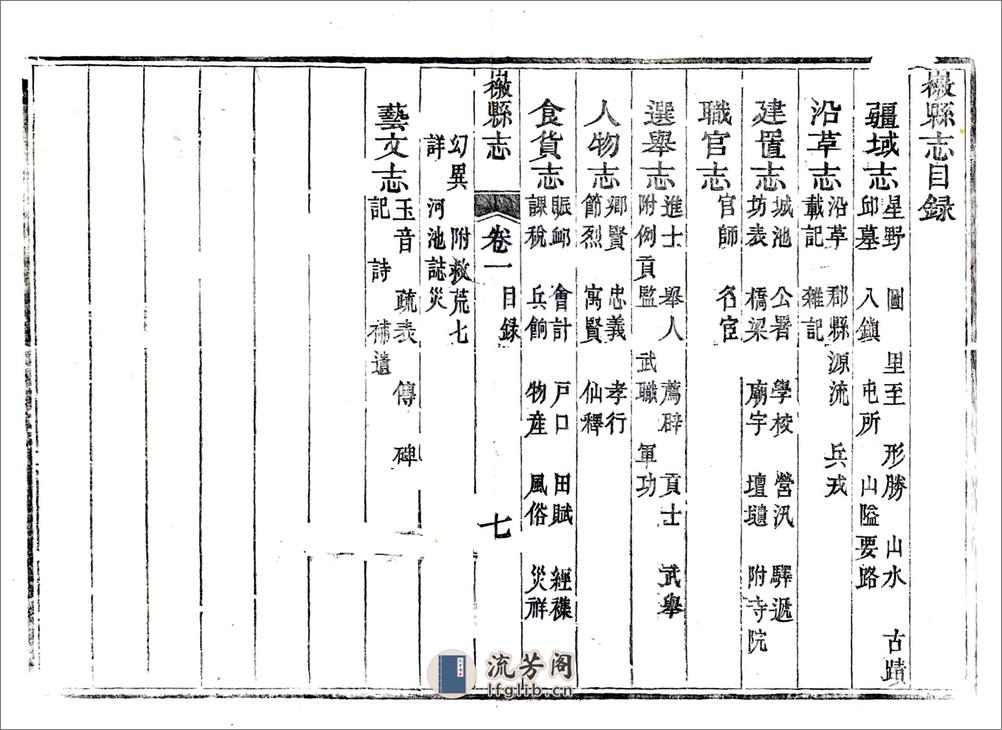 檓縣志目録
疆域志 星野 圖 里至 形勝 山水 古蹟
邱墓 入鎮 屯所 山隘要路
沿革志 沿革 郡縣源流 兵戎
載記 雜記
建置志 城池 公署 學校 營汛 驛遞
坊表 橋梁 廟宇 壇壝 附寺院
職官志 官師 名宦
選舉志 進士 舉人 薦辟 貢士 武舉
附例貢監 武職 軍功
人物志 鄉賢 忠義 孝行
節烈 寓賢 仙釋
食貨志 賑卹 會計 戸口 田賦 經襍
課稅 兵餉 物産 風俗 災祥
縣志 卷一 目録 七
幻異 附救荒七
詳 河池誌災
藝文志 玉音 疏表 傳 碑
記 詩 補遺
流芳阁
lfglib.cn